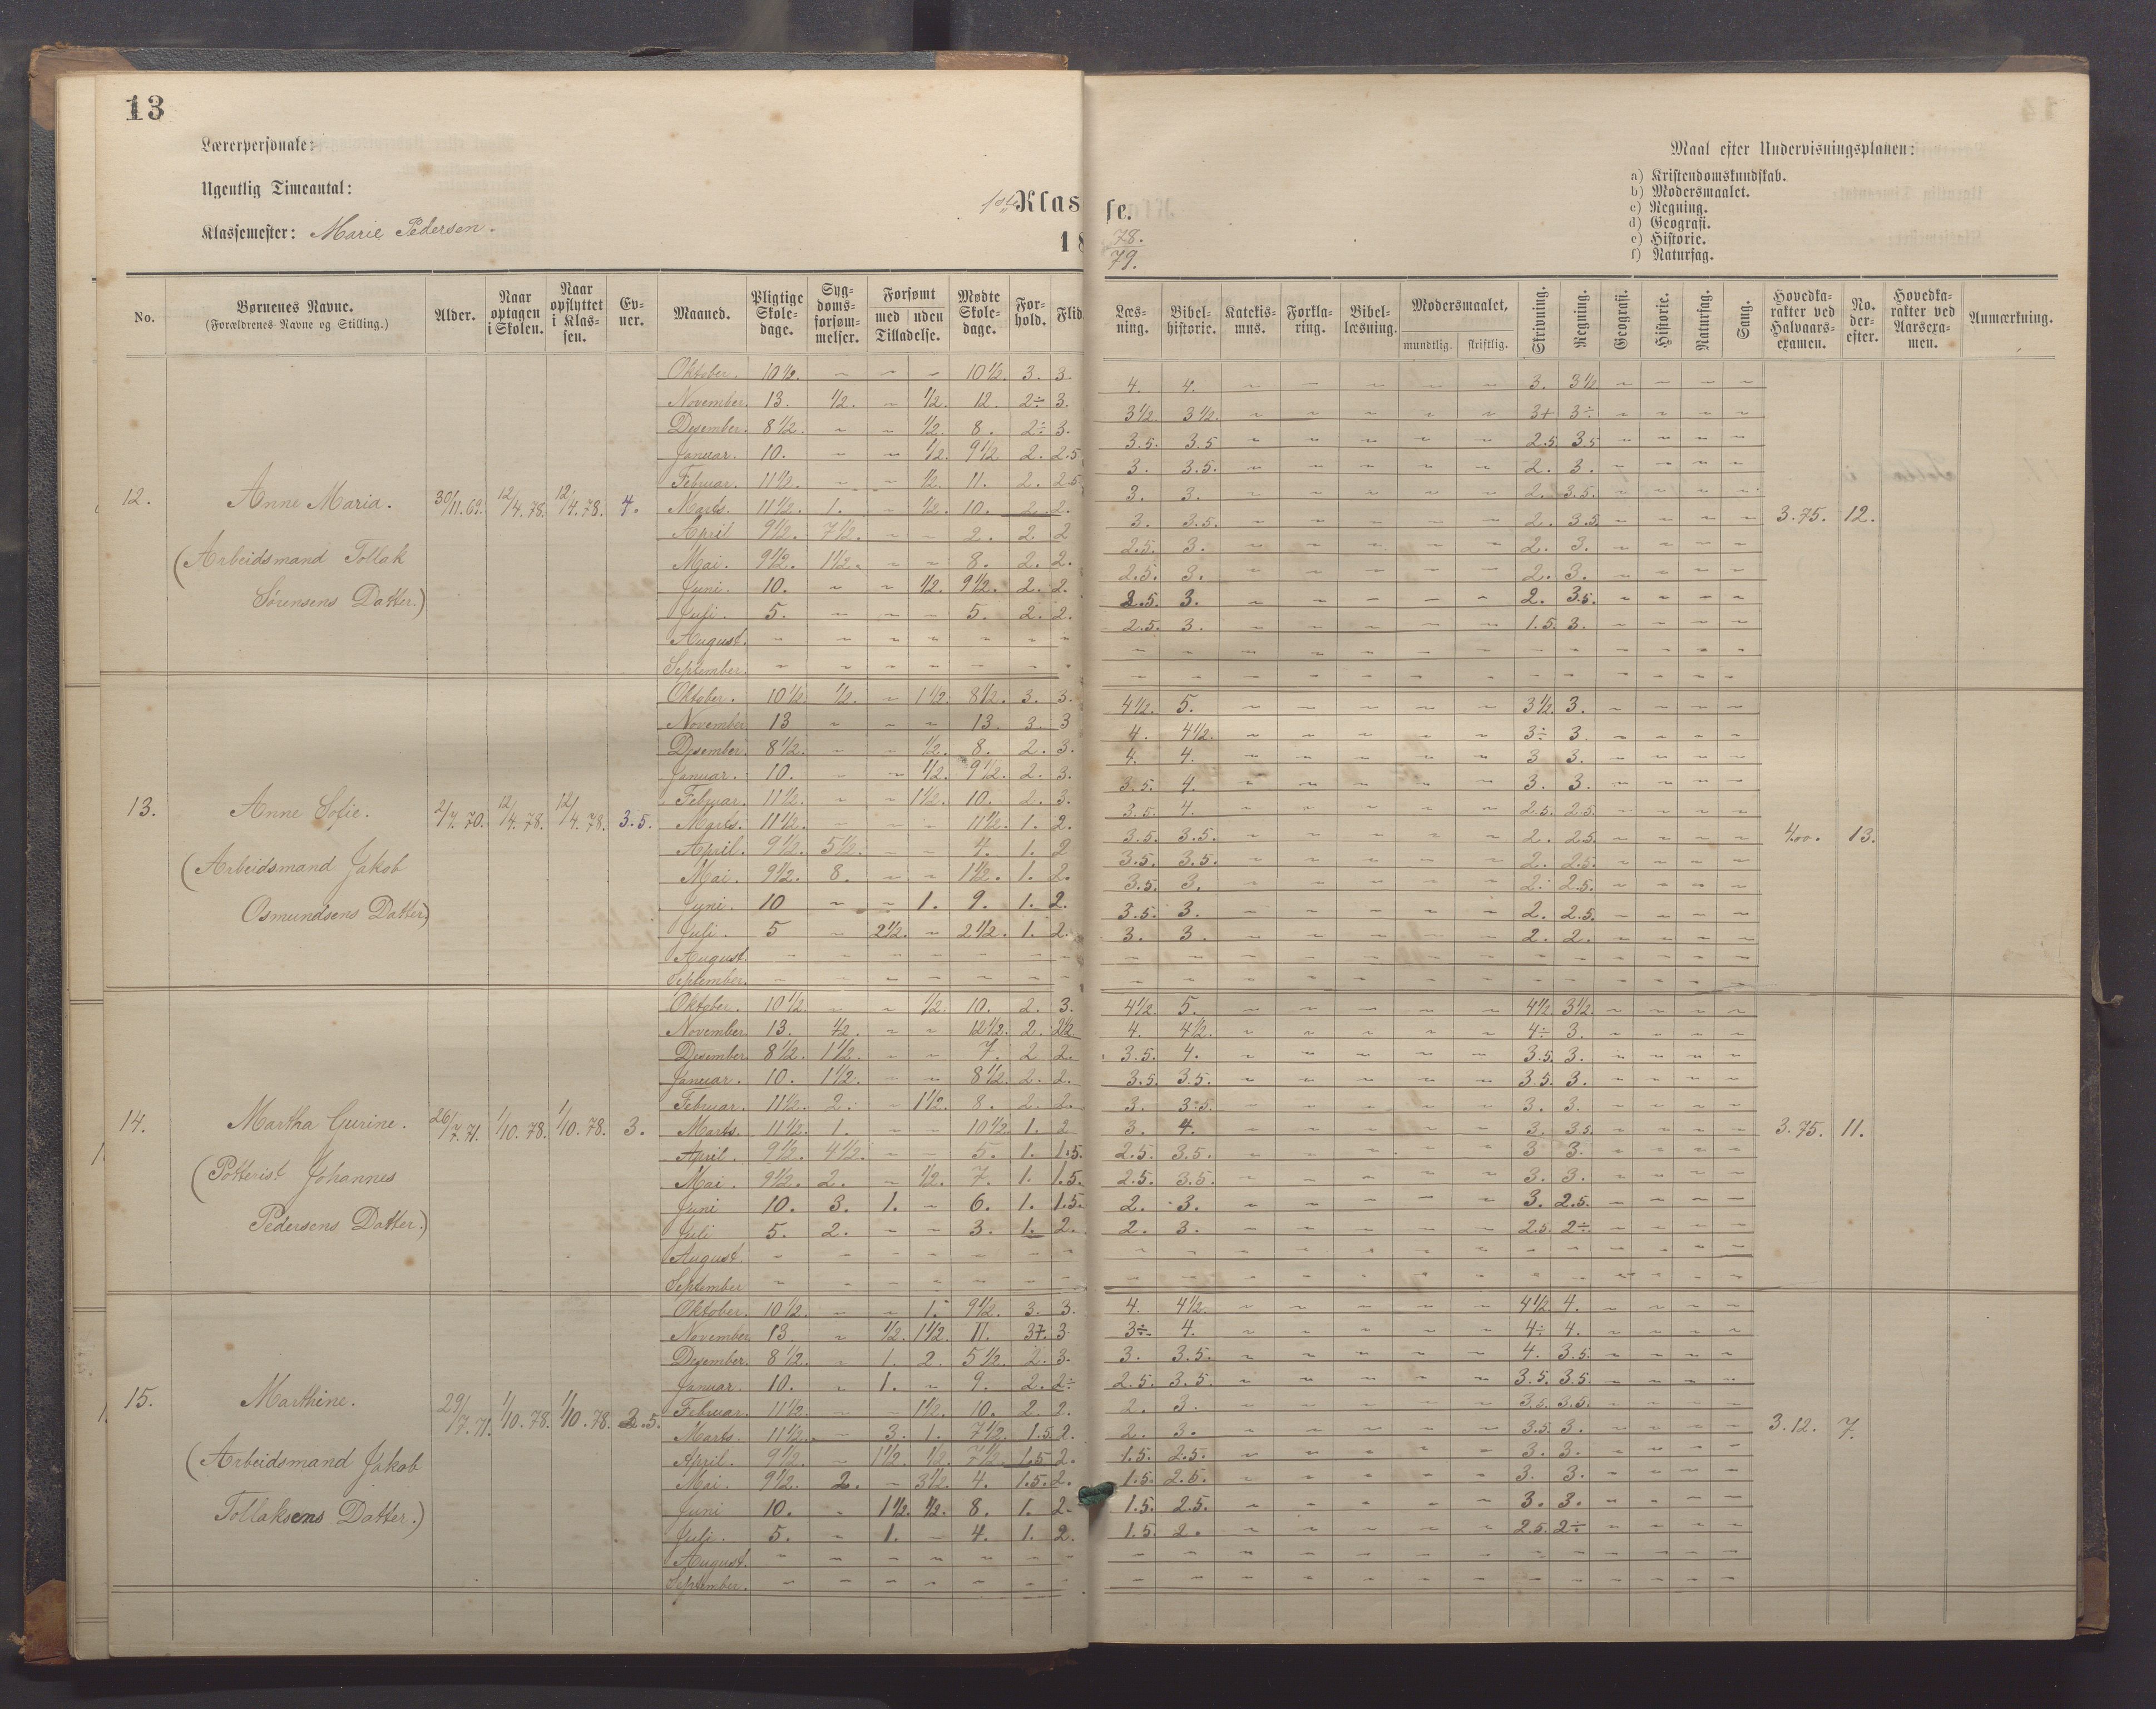 13
Lærerpersonale:
Ugentlig Timeantal:
Klassemester: Marie Pedersen.
1ste Klasse.
18 78. 79.
Maal efter Undervisningsplanen:
a) Kristendomskundskab.
b) Modersmaalet.
c) Regning.
d) Geografi.
e) Historie.
f) Naturfag.
No. | Børnenes Navne. (Forældrenes Navne og Stilling.) | Alder. | Naar optagen i Skolen. | Naar opflyttet i Klassen. | Evner. | Maaned. | Pligtige Skoledage. | Sygdomsforsømmelser. | Forsømt med uden Tilladelse. | Mødte Skoledage. | Forhold. | Flid. | Læsning. | Bibelhistorie. | Katekismus. | Forklaring. | Bibellæsning. | Modersmaalet, mundtlig. skriftlig. | Skrivning. | Regning. | Geografi. | Historie. | Naturfag. | Sang. | Hovedkarakter ved Halvaarsexamen. | No. derefter. | Hovedkarakter ved Aarsexamen. | Anmærkning.
12. Anne Maria. (Arbeidsmand Tollak Sørensens Datter.) 30/11.69. 12/4.78. 12/4.78. 4. 3.75. 12.
Oktober. 10 1/2. ~ ~ ~ 10 1/2. 3. 3. 4. 4. ~ ~ ~ ~ ~ 3. 3 1/2 ~ ~ ~ ~
November. 13. 1/2. ~ 1/2. 12. 2÷ 3. 3 1/2 3 1/2. ~ ~ ~ ~ ~ 3+ 3÷ ~ ~ ~ ~
Desember. 8 1/2. ~ ~ 1/2. 8. 2÷ 3. 3.5. 3.5 ~ ~ ~ ~ ~ 2.5 3.5 ~ ~ ~ ~
Januar. 10. ~ ~ 1/2. 9 1/2 2. 2.5 3. 3.5. ~ ~ ~ ~ ~ 2. 3. ~ ~ ~ ~
Februar. 11 1/2. ~ ~ 1/2. 11. 2. 2.5 3. 3. ~ ~ ~ ~ ~ 2. 3.5. ~ ~ ~ ~
Marts. 11 1/2. 1. ~ 1/2. 10. 2. 2. 3. 3.5. ~ ~ ~ ~ ~ 2. 3.5. ~ ~ ~ ~
April 9 1/2. 7 1/2. ~ ~ 2. 2. 2 2.5. 3. ~ ~ ~ ~ ~ 2. 3. ~ ~ ~ ~
Mai. 9 1/2. 1 1/2. ~ ~ 8. 2. 2. 2.5. 3. ~ ~ ~ ~ ~ 2. 3. ~ ~ ~ ~
Juni. 10. ~ ~ 1/2. 9 1/2. 2. 2. 2.5. 3. ~ ~ ~ ~ ~ 2. 3.5. ~ ~ ~ ~
Juli. 5. ~ ~ ~ 5. 2. 2. 2.5. 3. ~ ~ ~ ~ ~ 1.5. 3. ~ ~ ~ ~
August. ~ ~ ~ ~ ~ ~ ~
September. ~ ~ ~ ~ ~ ~ ~
13. Anne Sofie. (Arbeidsmand Jakob Osmundsens Datter) 2/7.70. 12/4.78. 12/4.78. 3.5. 4.00. 13.
Oktober. 10 1/2. 1/2. ~ 1 1/2. 8 1/2. 3. 3. 4 1/2. 5. ~ ~ ~ ~ ~ 3 1/2 3. ~ ~ ~ ~
November 13 ~ ~ ~ 13. 3. 3 4. 4 1/2. ~ ~ ~ ~ ~ 3÷ 3. ~ ~ ~ ~
Desember. 8 1/2. ~ ~ 1/2. 8. 2. 3. 4. 4. ~ ~ ~ ~ ~ 3 3. ~ ~ ~ ~
Januar. 10. ~ ~ 1/2. 9 1/2. 2. 3. 3.5. 4. ~ ~ ~ ~ ~ 3. 3. ~ ~ ~ ~
Februar. 11 1/2. ~ ~ 1 1/2. 10. 2. 3. 3.5. 4. ~ ~ ~ ~ ~ 2.5. 2.5. ~ ~ ~ ~
Marts. 11 1/2. ~ ~ ~ 11 1/2. 1. 2. 3.5. 3.5. ~ ~ ~ ~ ~ 2. 2.5. ~ ~ ~ ~
April. 9 1/2. 5 1/2. ~ ~ 4. 1. 2 3.5. 3.5. ~ ~ ~ ~ ~ 2. 2.5. ~ ~ ~ ~
Mai. 9 1/2. 8. ~ ~ 1 1/2. 1. 2. 3.5. 3. ~ ~ ~ ~ ~ 2. 2.5. ~ ~ ~ ~
Juni. 10 ~ ~ 1. 9. 1. 2. 3.5. 3. ~ ~ ~ ~ ~ 2. 2.5. ~ ~ ~ ~
Juli. 5 ~ 2 1/2. ~ 2 1/2. 1. 2. 3. 3. ~ ~ ~ ~ ~ 2. 2. ~ ~ ~ ~
August. ~ ~ ~ ~ ~ ~ ~
September. ~ ~ ~ ~ ~ ~ ~
14. Martha Gurine. (Potterist Johannes Pedersens Datter.) 26/7.71. 1/10.78. 1/10.78. 3. 3.75. 11.
Oktober. 10 1/2. ~ ~ 1/2. 10. 2. 3. 4 1/2 5. ~ ~ ~ ~ ~ 4 1/2 3 1/2. ~ ~ ~ ~
November 13. 1/2. ~ ~ 12 1/2. 2. 2 1/2 4. 4 1/2. ~ ~ ~ ~ ~ 4÷ 3. ~ ~ ~ ~
Desember 8 1/2. 1 1/2. ~ ~ 7. 2 2. 3.5. 4. ~ ~ ~ ~ ~ 3.5. 3. ~ ~ ~ ~
Januar. 10. 1 1/2. ~ ~ 8 1/2. 2. 2. 3.5. 3.5. ~ ~ ~ ~ ~ 3.5. 3. ~ ~ ~ ~
Februar. 11 1/2. 2. ~ 1 1/2. 8. 2. 2. 3. 3.5. ~ ~ ~ ~ ~ 3. 3. ~ ~ ~ ~
Marts. 11 1/2. 1. ~ ~ 10 1/2. 1. 2 3. 4. ~ ~ ~ ~ ~ 3. 3.5. ~ ~ ~ ~
April. 9 1/2. 4 1/2. ~ ~ 5. 1. 1.5. 2.5. 3.5. ~ ~ ~ ~ ~ 3 3. ~ ~ ~ ~
Mai. 9 1/2. 2. ~ 1/2. 7. 1. 1.5. 2.5. 3.5. ~ ~ ~ ~ ~ 3. 3. ~ ~ ~ ~
Juni 10. 3. 1. ~ 6. 1. 1.5. 2. 3. ~ ~ ~ ~ ~ 3. 2.5. ~ ~ ~ ~
Juli 5. 2. ~ ~ 3. 1. 2. 2. 3. ~ ~ ~ ~ ~ 2.5. 2÷ ~ ~ ~ ~
August. ~ ~ ~ ~ ~ ~ ~
September ~ ~ ~ ~ ~ ~ ~
15. Marthine. (Arbeidsmand Jakob Tollaksens Datter.) 29/7.71. 1/10.78. 1/10.78. 2.5. 3.12. 7.
Oktober. 10 1/2. ~ ~ 1. 9 1/2. 3. 3. 4. 4 1/2. ~ ~ ~ ~ ~ 4 1/2 4. ~ ~ ~ ~
November 13. ~ 1/2. 1 1/2. 11. 3+. 3 3÷. 4. ~ ~ ~ ~ ~ 4÷ 4. ~ ~ ~ ~
Desember. 8 1/2. ~ 1. 2. 5 1/2. 2. 3. 3. 3.5. ~ ~ ~ ~ ~ 4. 3.5. ~ ~ ~ ~
Januar. 10. ~ 1. ~ 9. 2. 2÷ 2.5. 3.5. ~ ~ ~ ~ ~ 3.5. 3.5. ~ ~ ~ ~
Februar. 11 1/2. ~ ~ 1 1/2. 10. 2. 2. 2. 3. ~ ~ ~ ~ ~ 3.5. 3.5. ~ ~ ~ ~
Marts. 11 1/2. ~ 3. 1. 7 1/2. 1.5. 2. 2. 3. ~ ~ ~ ~ ~ 3.5. 3. ~ ~ ~ ~
April. 9 1/2. ~ 1 1/2. 1/2. 7 1/2. 1.5 2. 1.5. 2.5. ~ ~ ~ ~ ~ 3. 3. ~ ~ ~ ~
Mai. 9 1/2. 2. ~ 3 1/2. 4. 1.5. 2. 1.5. 2.5. ~ ~ ~ ~ ~ 3. 3. ~ ~ ~ ~
Juni 10. ~ 1 1/2. 1/2. 8. 1. 2. 1.5. 2.5. ~ ~ ~ ~ ~ 3. 3. ~ ~ ~ ~
Juli. 5. ~ 1. ~ 4. 1. 2. 1.5. 2. ~ ~ ~ ~ ~ 2.5. 2÷ ~ ~ ~ ~
August. ~ ~ ~ ~ ~ ~ ~
September. ~ ~ ~ ~ ~ ~ ~